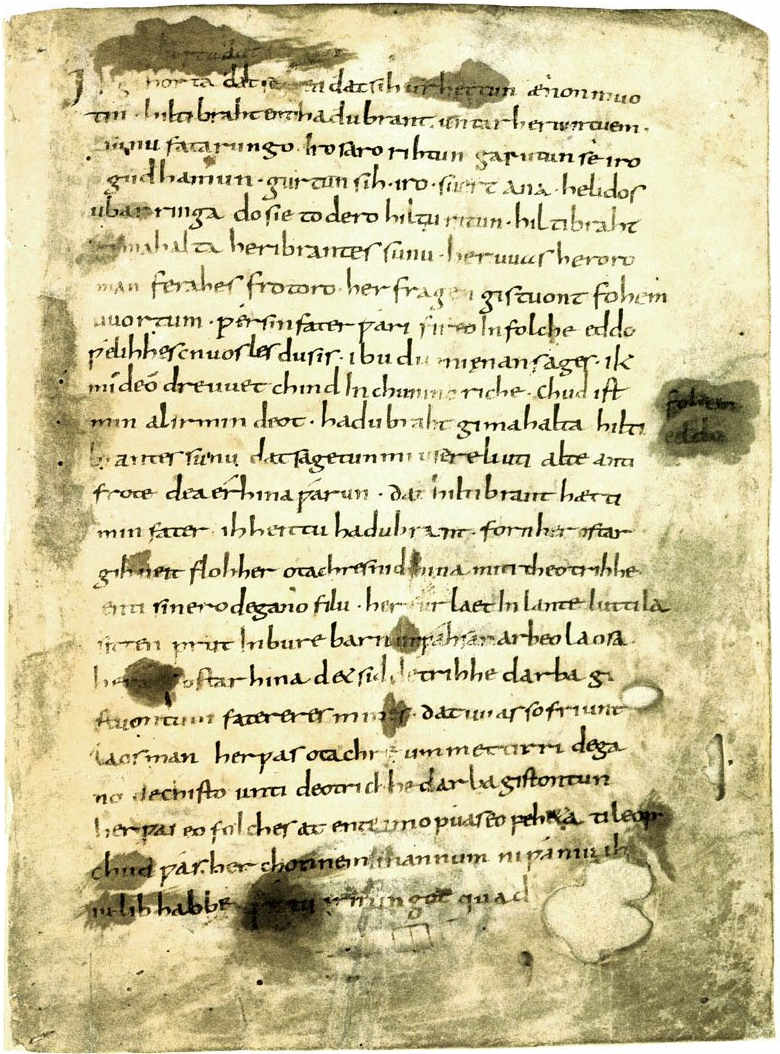 Ik gihorta dat seggen dat sih urhettun ænon muo
tin · hiltibraht enti hadubrant · untar heriun tuem ·
sunu fatarungo · iro saro rihtun garutun se iro
gudhamun · gurtun sih · iro · suert ana · helidos
ubar ringa do sie to dero hiltu ritun · hiltibraht
gimahalta heribrantes sunu · her uuas heroro
man ferahes frotoro · her fragen gistuont fohem
uuortum · ƿer sin fater ƿari fireo In folche eddo
ƿelihhes cnuosles du sis · ibu du mi enan sages · ik
mi de odre uuet chind In chunincriche · chud ist
min al irmindeot · hadubraht gimahalta hilti
brantes sunu dat sagetun mi usere liuti alte anti
frote dea erhina ƿarun · dat hiltibrant hætti
min fater · ih heittu hadubrant · forn her ostar
gihueit floh her otachres nid hina miti theotrihhe
enti sinero degano filu · her furlaet In lante luttila
sitten prut In bure barn unƿahsan arbeo laosa
her raet ostar hina det sid detrihhe darba gi
stuontum fatereres mines · dat uuas so friunt
laos man her ƿas otachre ummet tirri dega
no dechisto unti deotrichhe darba gistontun
her ƿas eo folches at ente imo puas eo peheta ti leop
chud ƿas her chonnem mannum ni ƿaniu ih
iu lib habbe ƿettu irmingot quad